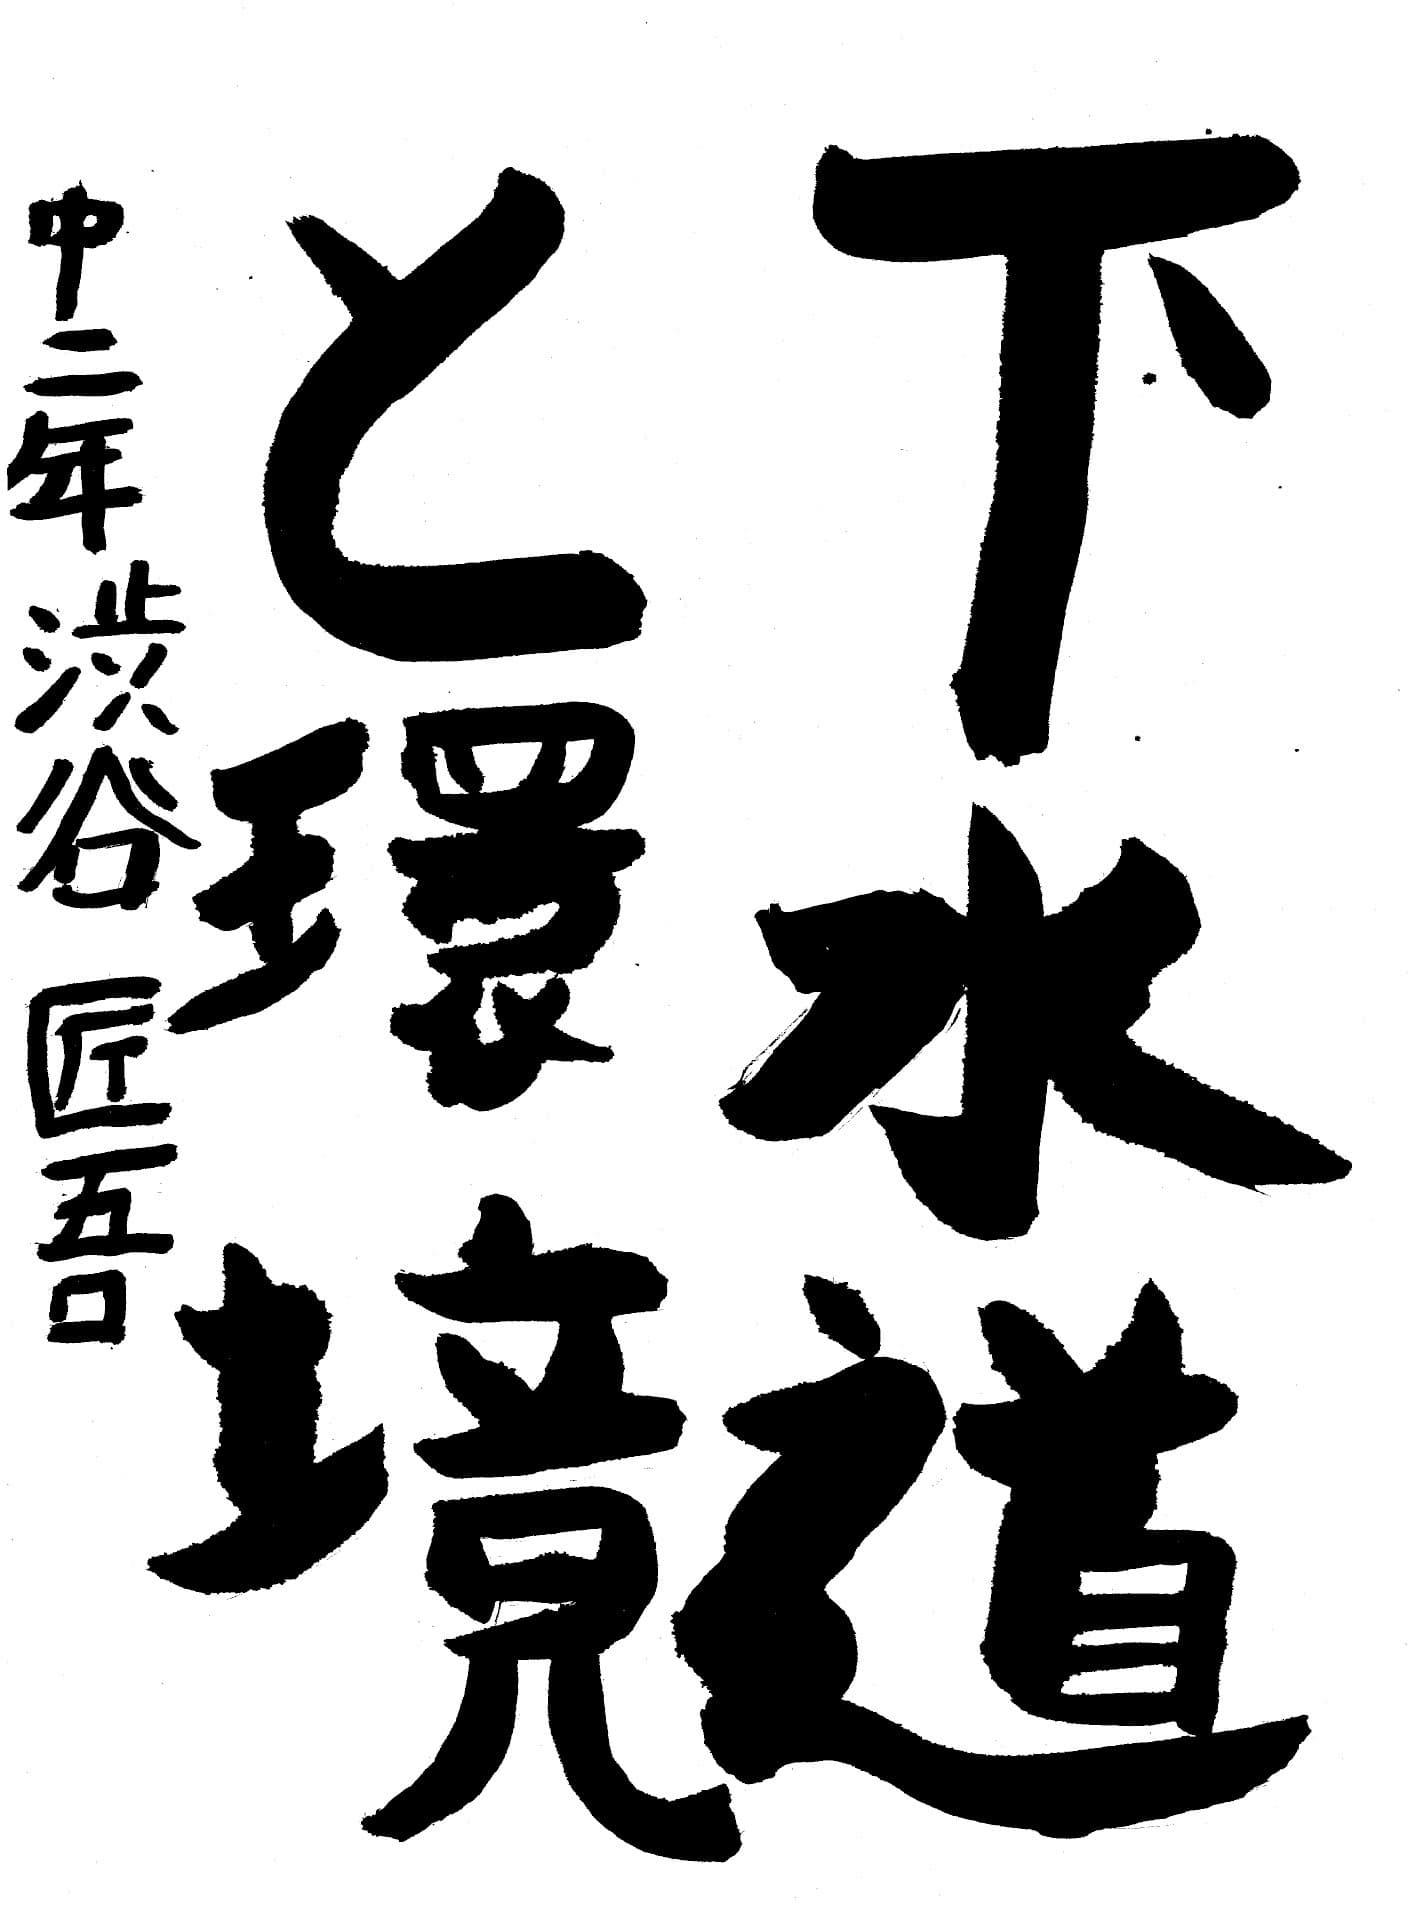 下水道
と環境
中二年 渋谷 匠吾